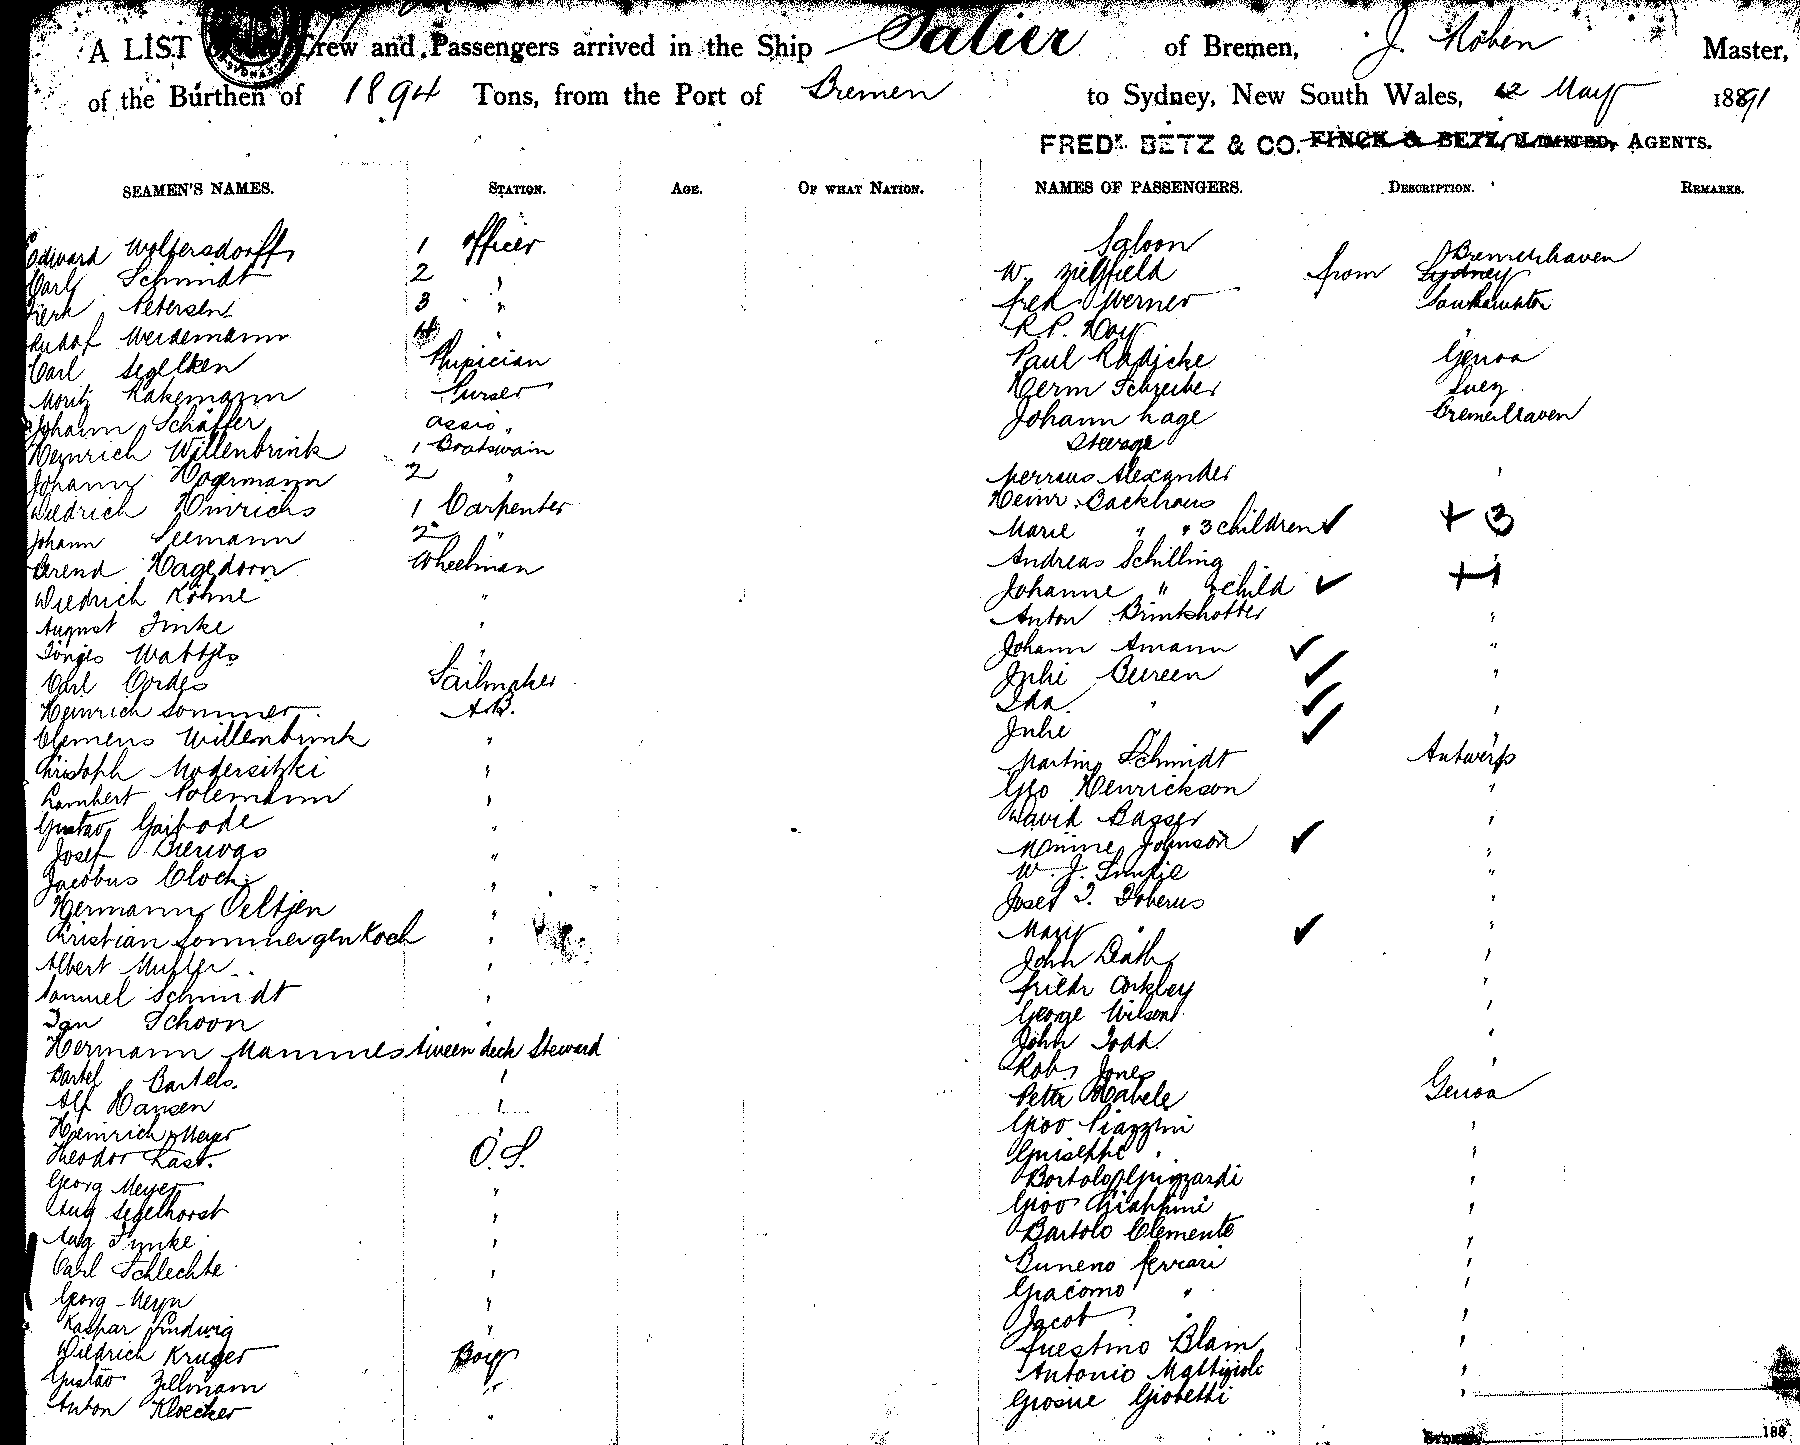 A LIST Crew and Passengers arrived in the Ship Salier of Bremen, J. Master,
of the Burthen of 1894 Tons, from the Port of Bremen to Sydney, New South Wales, 12 May 1891
FREDK. BETZ & CO. FINCK & BETZ, LIMITED, AGENTS.
SEAMEN'S NAMES. STATION. AGE. OF WHAT NATION. NAMES OF PASSENGERS. DESCRIPTION. REMARKS.
Edward Woltersdorff 1 Officer
Carl Schmidt 2 "
Petersen 3 "
Rudolf Weidemann 4 "
Carl Segelken Physician
Moritz Kakemann Purser
Johann Schäffer Assis "
Heinrich Willenbrink 1 Boatswain
Johann Hogermann 2 "
Diedrich Hinrichs 1 Carpenter
Johann Seemann 2 "
Arend Hagedorn Wheelman
Diedrich Köhne "
August Finke "
Tönjes Wattjes "
Carl Cordes Sailmaker
Heinrich Sommer A.B.
Clemens Willenbrink "
Christoph Modersitzki "
Lambert Nolemann "
Gustav "
Josef Bierwas "
Jacobus Cloch "
Hermann Oeltjen "
Christian Sommer gen Koch "
Albert Muller "
Samuel Schmidt "
Jan Schoon "
Hermann Mammes tween deck Steward
Bartel Bartels "
Alf Hansen "
Heinrich Meyer "
Theodor Last. O.S.
Georg Meyer "
Aug Segelhorst "
Aug Funke "
Carl Schlechte "
Georg Meyn "
Kaspar Ludwig "
Diedrich Kruger Boy
Gustav Zellmann "
Anton Kloecker "
Saloon
W. Zielfield from Sydney Bremerhaven
Fred Werner Southampton
R. P. Hay
Paul Radicke Genoa
Herm Schreiber Suez
Johann Hage Bremerhaven
Steerage
Alexander "
Heinr. Backhaus
Marie " " 3 children ✓ + 3
Andreas Schilling
Johanne " child ✓ + 1
Anton Brinkhotter "
Johann Amann ✓ "
Julie Beireen ✓ "
Ida " ✓ "
Julie " ✓ "
Martin Schmidt Antwerp
Geo Henrickson "
David Basser "
Minnie Johnson ✓ "
W. J. "
Josef T. "
Mary " ✓ "
John "
Friedr Corkley "
George Wilson "
John Todd "
Rob. Jones "
Peter Habele Genoa
Giov Piazzini "
Guiseppe " "
Bortolo Guizzardi "
Giov Giappini "
Bartolo Clemente "
Buneno Ferrari "
Giacomo " "
Jacob " "
Fuestino Blain "
Antonio Mattigiole "
Giosue Giobetti "
188